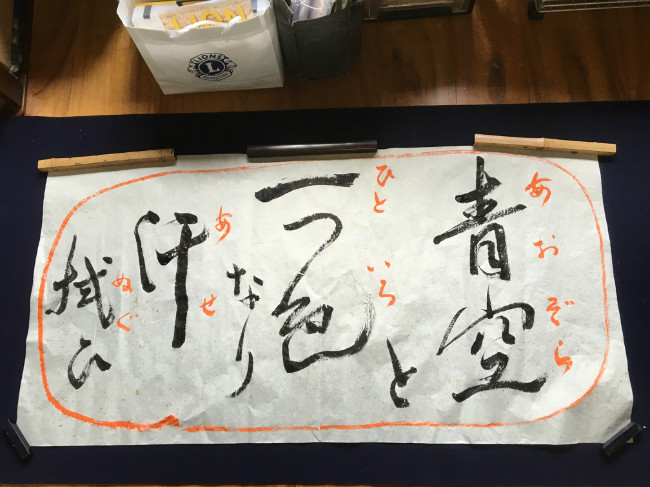 あおぞら
青空
と
ひといろ
一つ色
なり
あせ
汗
ぬぐ
拭ひ
LIONS
L